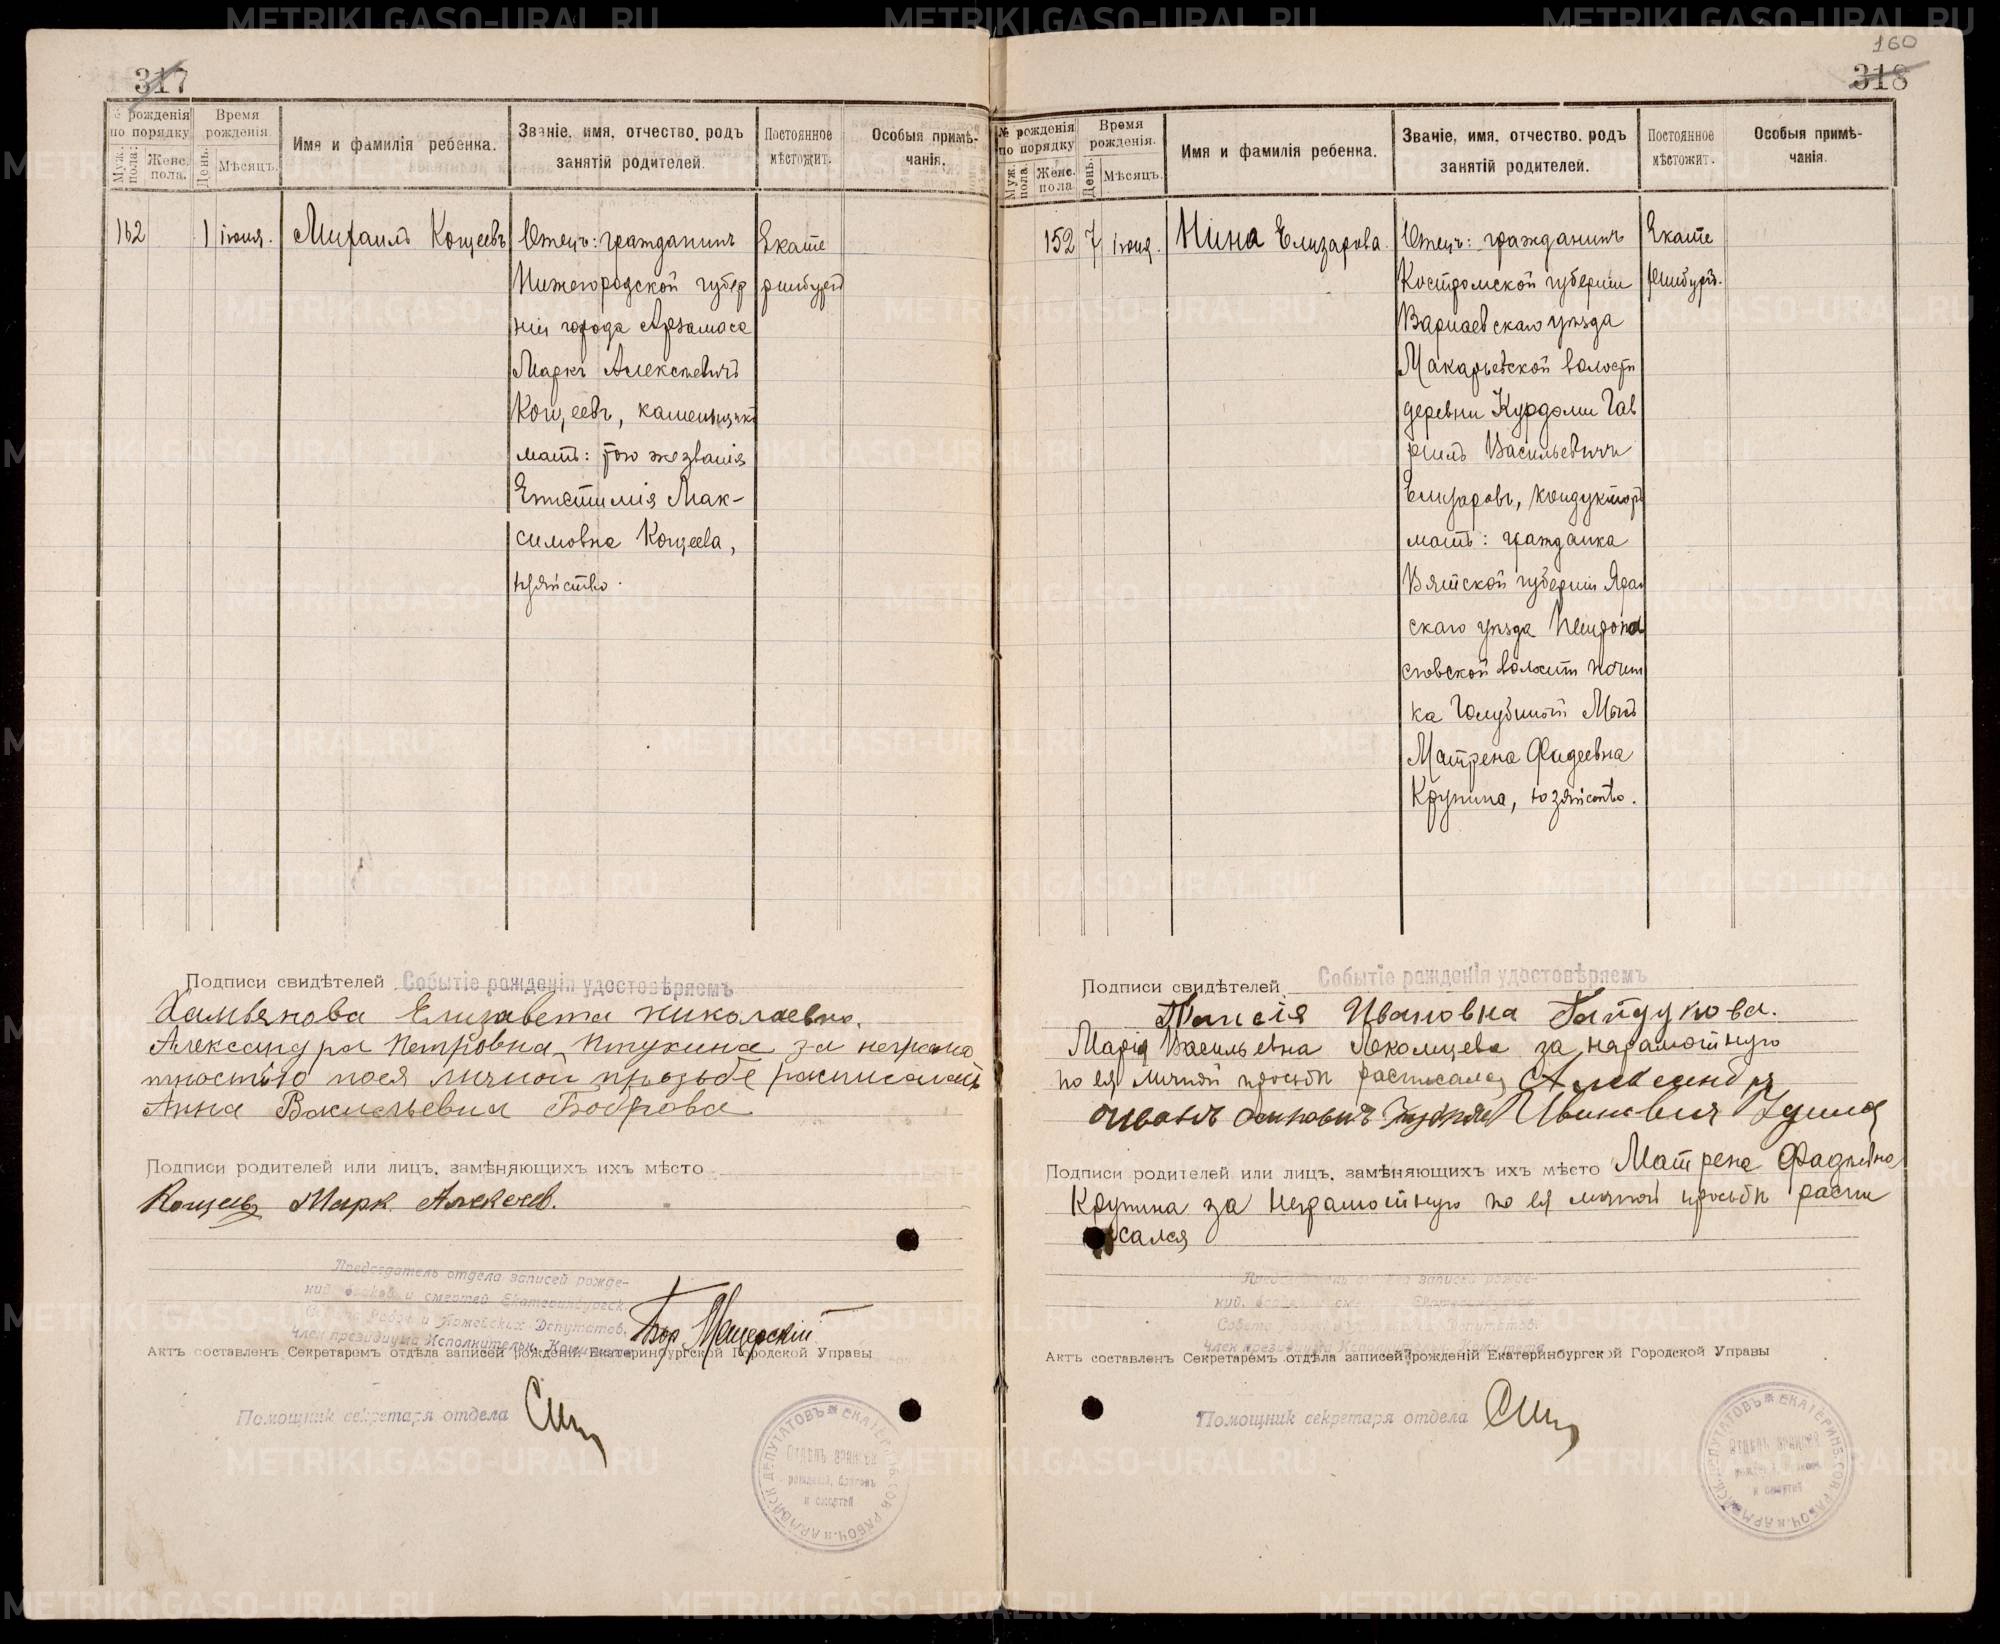 317
№ рожденія по порядку
Муж. пола.
Женс. пола.
Время рожденія.
День.
Мѣсяцъ.
Имя и фамилія ребенка.
Званіе, имя, отчество, родъ занятій родителей.
Постоянное мѣстожит.
Особыя примѣчанія.
162
1 іюня.
Михаилъ Кощеевъ
Отецъ: гражданинъ
Нижегородской губер
ніи города Арзамаса
Маркъ Алексѣевичъ
Кощеевъ, каменщикъ
мать: того же званія
Мак-
симовна Кощеева,
Екате
ринбургъ
Подписи свидѣтелей Событіе рожденія удостовѣряемъ
Елизавета Николаевна.
Александра Петровна Птухина за неграмо
тностью поея личной прозьбе расписалась
Анна Васильевна Боброва
Подписи родителей или лицъ, замѣняющихъ ихъ мѣсто
Кощеевъ Марк Алексеев.
Председатель отдела записей рожде-
ний, браков и смертей Екатеринбургск.
Совета Рабоч. и Армейских Депутатов.
Член президиума Исполнительн. Комитета
Актъ составленъ Секретаремъ отдѣла записей рожденій Екатеринбургской Городской Управы
Помощник секретаря отдела
ЕКАТЕРИНБ. СОВ. РАБОЧ. и АРМЕЙСК. ДЕПУТАТОВЪ
Отделъ записей
рождений, браковъ
и смертей
160
318
№ рожденія по порядку
Муж. пола.
Женс. пола
Время рожденія.
День.
Мѣсяцъ.
Имя и фамилія ребенка.
Званіе, имя, отчество, родъ занятій родителей.
Постоянное мѣстожит.
Особыя примѣчанія.
152
7 іюня.
Нина Елизарова.
Отецъ: гражданинъ
Костромской губерніи
Варнавскаго уѣзда
Макарьевской волости
деревни Гав
ріилъ Васильевичъ
Елизаровъ, кондукторъ
мать: гражданка
Вятской губерніи Яран
скаго уѣзда
волости почин
ка
Матрена Фадеевна
Крупина, хозяйство.
Екате
ринбургъ.
Подписи свидѣтелей Событіе рожденія удостовѣряемъ
Таисія Ивановна Гайдукова.
Марія Васильевна Лекомцева за неграмотную
по ея личной просьбѣ расписалась Александра
Ивановна
Подписи родителей или лицъ, замѣняющихъ ихъ мѣсто Матрена Фадѣевна
Крупина за неграмотную по ея личной просьбѣ распи
сался
Председатель отдела записей рожде-
ний, браков и смертей Екатеринбургск.
Совета Рабоч. и Армейских Депутатов.
Член президиума Исполнительн. Комитета
Актъ составленъ Секретаремъ отдѣла записей рожденій Екатеринбургской Городской Управы
Помощник секретаря отдела
ЕКАТЕРИНБ. СОВ. РАБОЧ. и АРМЕЙСК. ДЕПУТАТОВЪ
Отделъ записей
рождений, браковъ
и смертей
METRIKI.GASO-URAL.RU